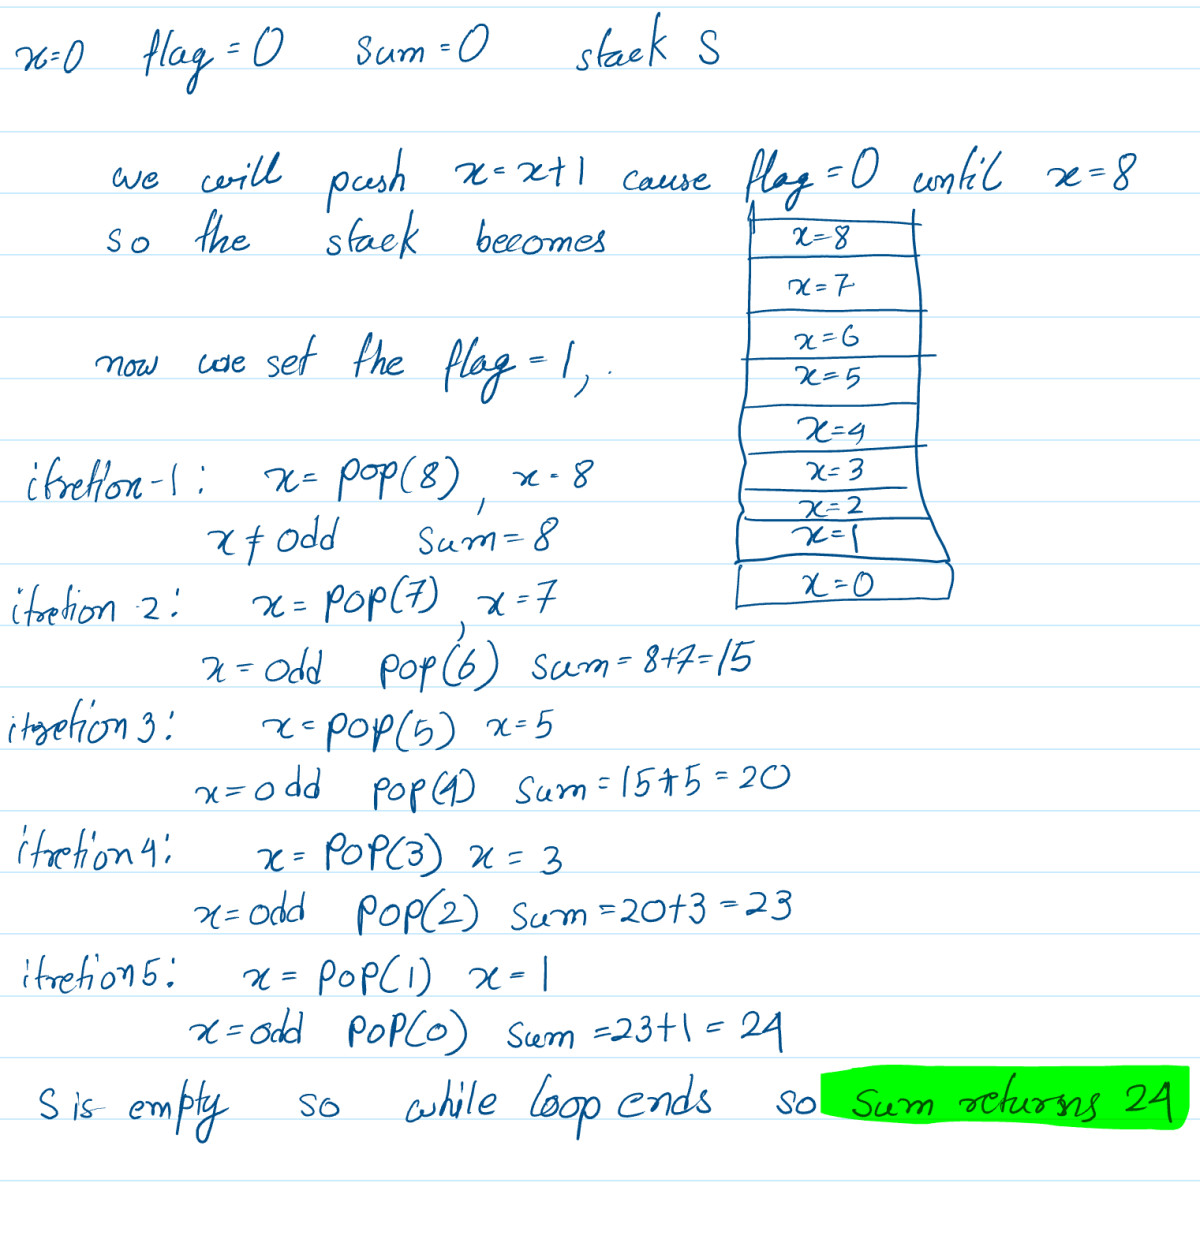 x=0 flag=0 sum=0 stack S
we will push x=x+1 cause flag=0 until x=8
so the stack becomes
x=8
x=7
x=6
x=5
x=4
x=3
x=2
x=1
x=0
now we set the flag=1,
itretion-1: x= pop(8), x=8
x≠odd sum=8
itretion 2: x= pop(7), x=7
x=odd pop(6) sum=8+7=15
itretion 3: x=pop(5) x=5
x=odd pop(4) sum=15+5=20
itretion 4: x= POP(3) x=3
x=odd POP(2) sum=20+3=23
itretion 5: x= POP(1) x=1
x=odd POP(0) sum=23+1=24
S is empty so while loop ends so sum returns 24